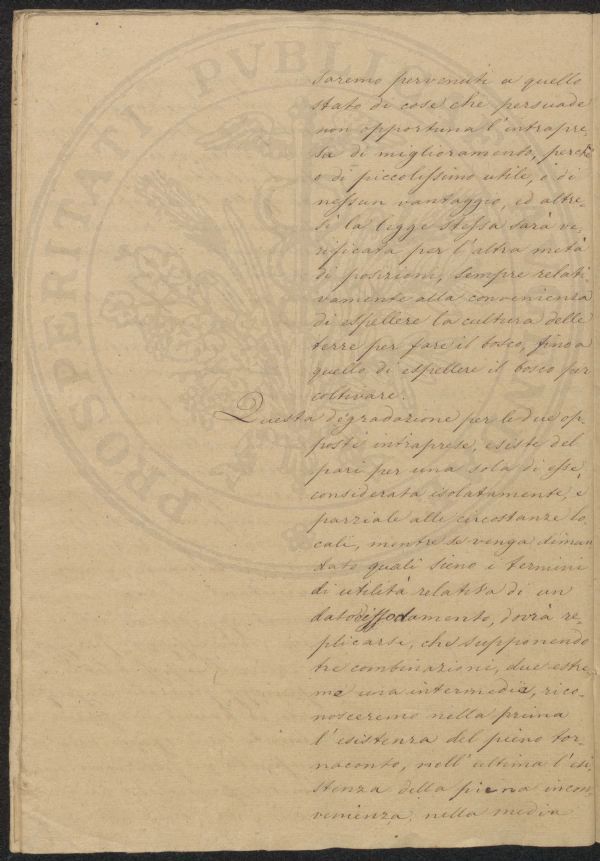 PROSPERITATI PVBLIC
saremo pervenuti a quello
stato di cose che persuade
non opportuna l'intrapre-
sa di miglioramento, perchè
o di piccolissimo utile, o di
nessun vantaggio, ed altre-
sì la legge stessa sarà ve-
rificata per l'altra metà
di posizioni, sempre relati
vamente alla convenienza
di espellere la cultura delle
terre per fare il bosco, fino a
quello di espellere il bosco per
coltivare.
Questa degradazione per le due op-
posti intraprese, esiste del
pari per una sola di esse,
considerata isolatamente, e
parziale alle circostanze lo-
cali, mentre se venga diman
dato quali sieno i termini
di utilità relativa di un
dato diffodamento, dovrà re-
plicarsi, che supponendo
tre combinazioni, due estre
me una intermedia, rico-
nosceremo nella prima
l'esistenza del pieno tor-
naconto, nell'ultima l'esi-
stenza della piena incon-
venienza, nella media